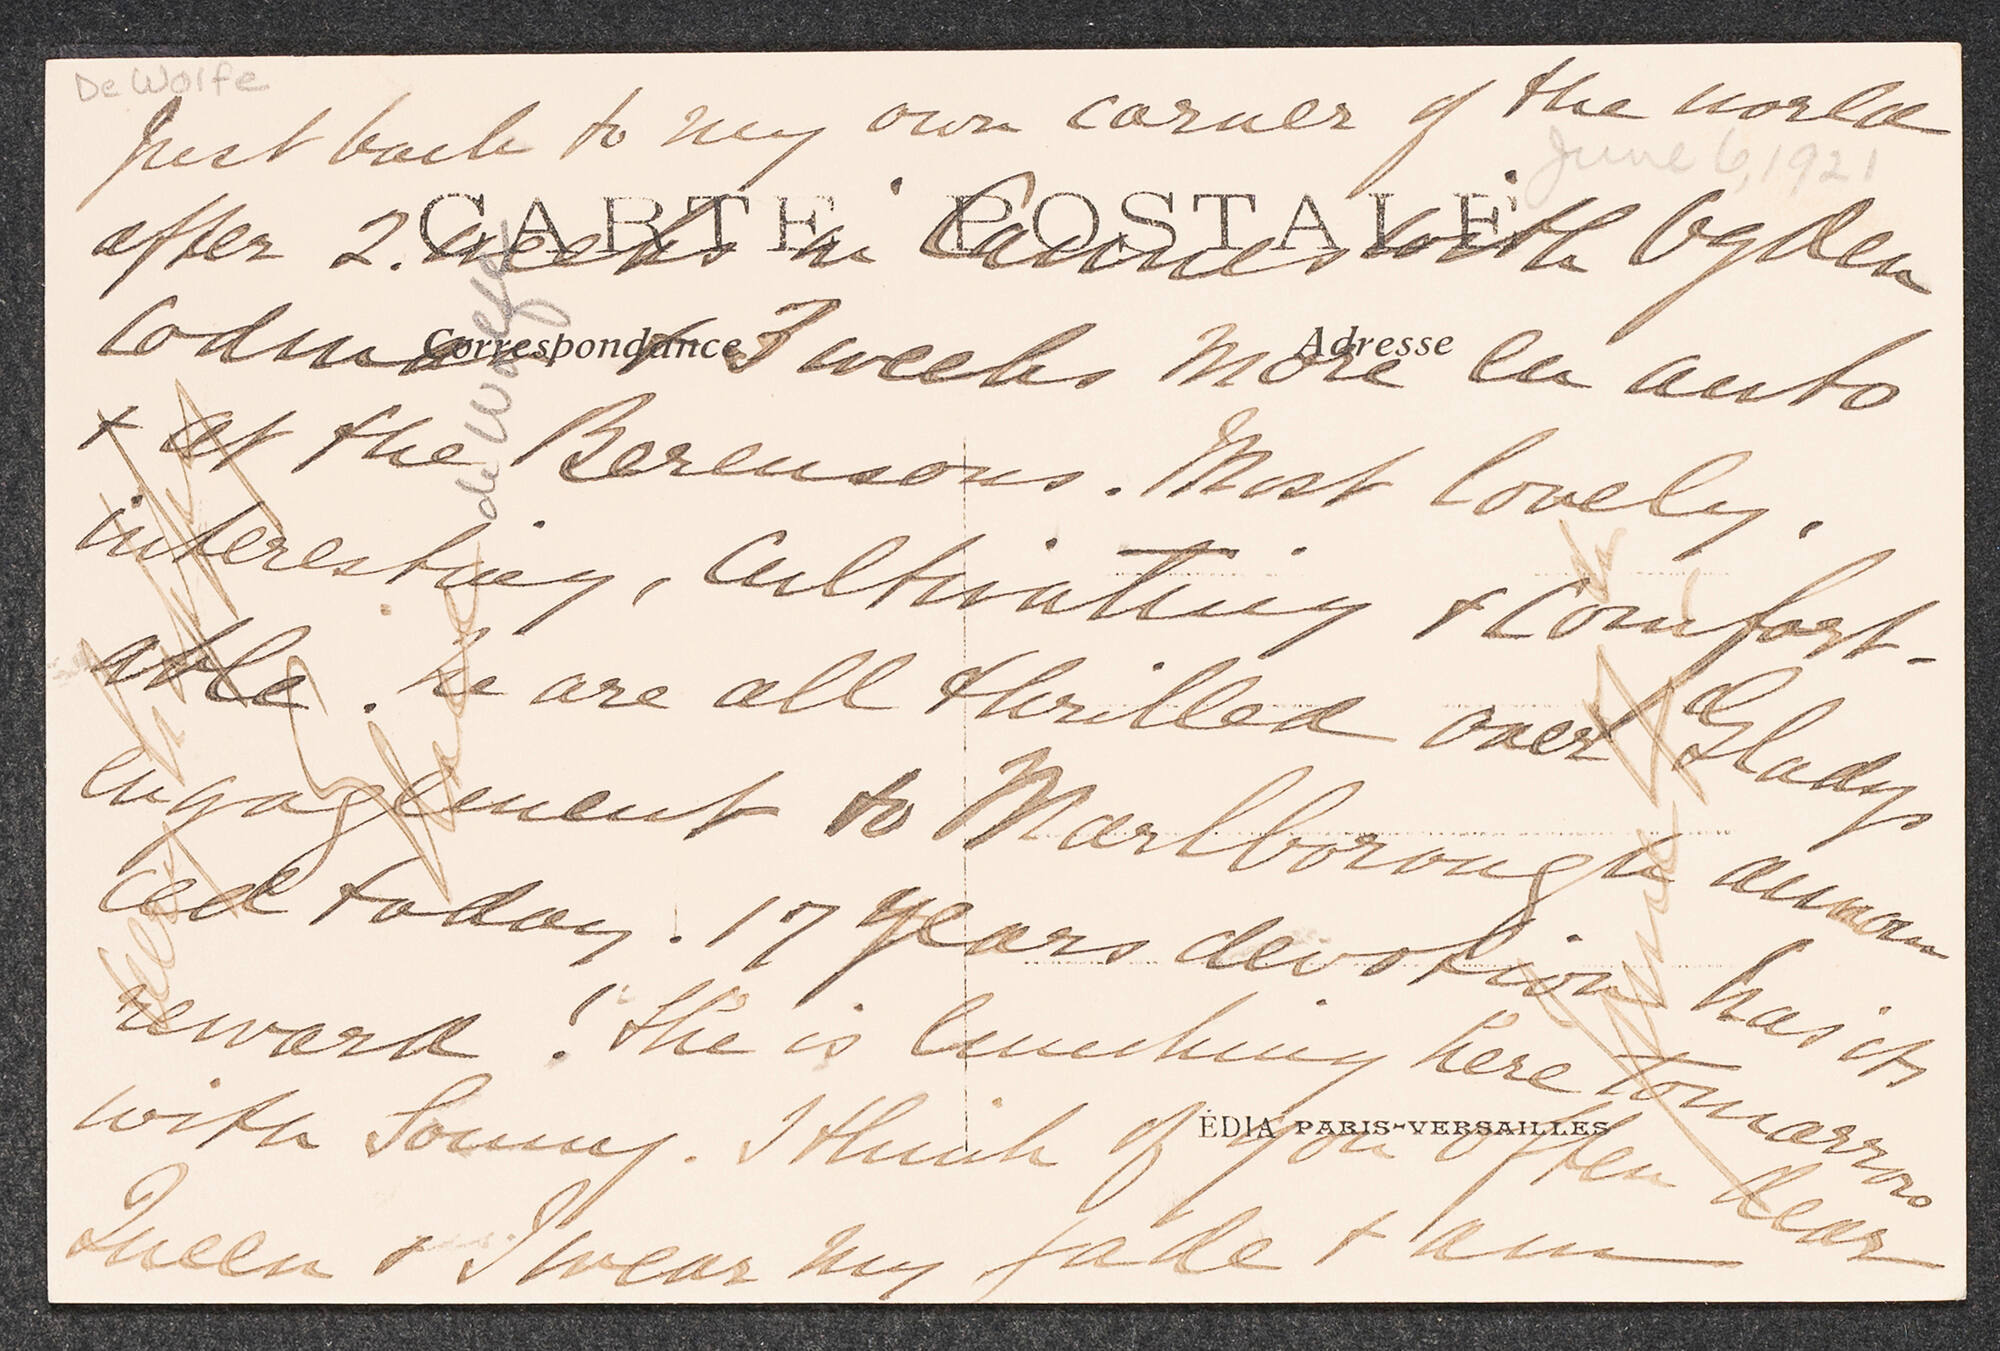 De Wolfe
Just back to my own corner of the world
June 6, 1921
CARTE POSTALE
after 2. weeks in Cannes with Ogden
Correspondance
Adresse
Codman + 3 weeks more en auto
de Wolfe
+ at the Berensons. Most lovely,
interesting, cultivating + comfort-
able. We are all thrilled over Gladys
engagement to Marlborough announ
ced today. 17 years devotion has its
reward! She is lunching here tomorrow
ÉDIA PARIS-VERSAILLES
with Sonny. I think of you often dear
Queen + I wear my jade + am